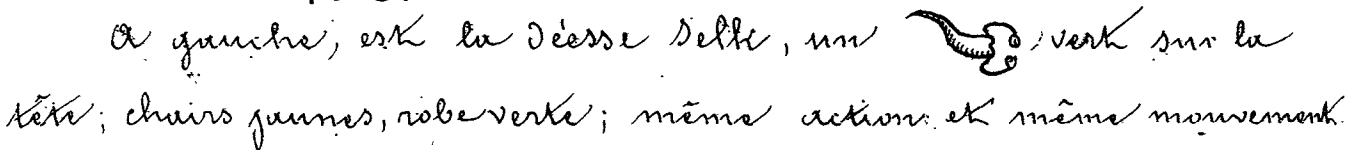 A gauche, est la Déesse Selk, un vert sur la
tête; chairs jaunes, robe verte; même action et même mouvement.